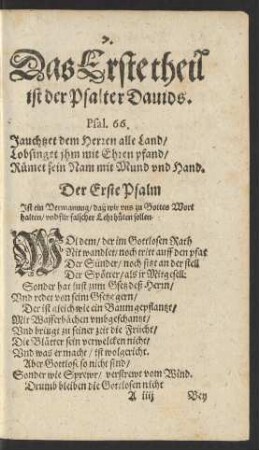 7.
Das Erste theil
ist der Psalter Dauids.
Psal. 66.
Jauchtzet dem Herren alle Land/
Lobsinget jhm mit Ehren pfand/
Rümet sein Nam mit Mund vnd Hand.
Der Erste Psalm
Ist ein Vermanung/ daß wir vns zu Gottes Wort
halten/ vnd für falscher Lehr hüten sollen
WOl dem/ der im Gottlosen Rath
Nit wandlet/ noch tritt auff den pfat
Der Sünder/ noch sitz an der stell
Der Spötter/ als jr Mitgesell:
Sonder hat lust zum Gsetz deß Herrn/
Vnd redet von seim Gsetz gern/
Der ist gleich wie ein Baum gepflantzt/
Mit Wasserbächen vmbgeschantzt/
Vnd bringt zu seiner zeit die Früecht/
Die Blätter sein verwelcken nicht/
Vnd was er macht/ ist wolgericht.
Aber Gottloß so nicht sind/
Sonder wie Sprewr/ verstrewt vom Wind.
Drumb bleiben die Gottlosen nicht
A iiij Bey